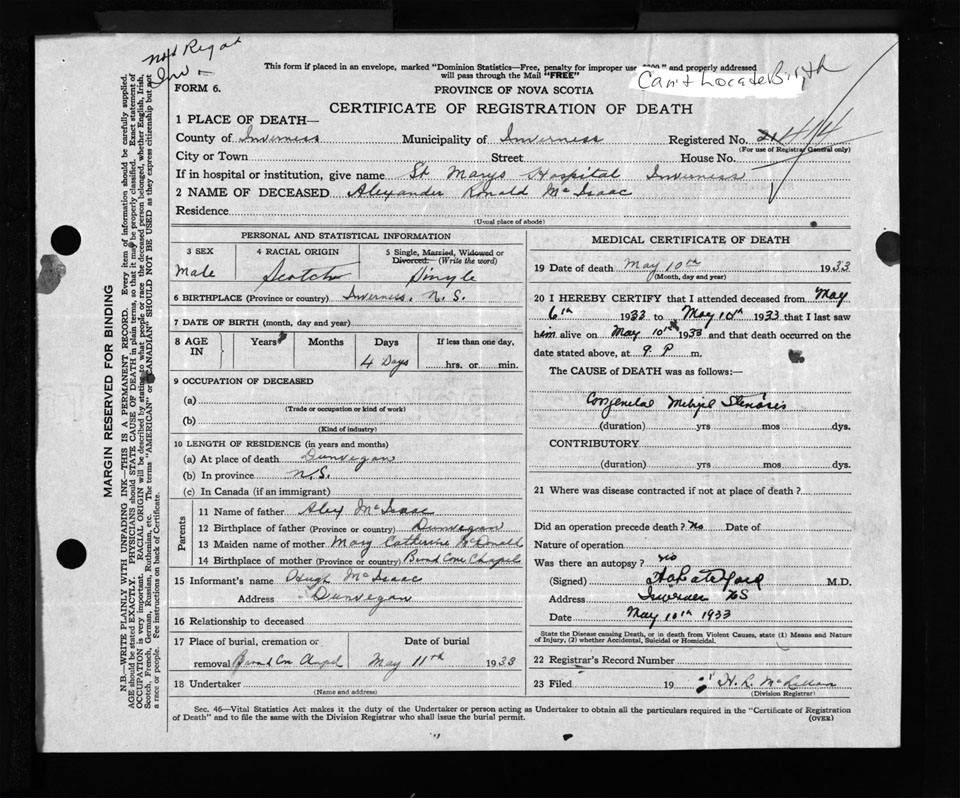 Not Regd
Inv -
This form if placed in an envelope, marked "Dominion Statistics—Free, penalty for improper use $300" and properly addressed
will pass through the Mail "FREE"
Can't Locate Birth
FORM 6.
PROVINCE OF NOVA SCOTIA
CERTIFICATE OF REGISTRATION OF DEATH
1 PLACE OF DEATH—
County of Inverness Municipality of Inverness Registered No. 21 414
(For use of Registrar General only)
City or Town Street House No.
If in hospital or institution, give name St Marys Hospital Inverness
2 NAME OF DECEASED Alexander Ronald McIsaac
Residence
(Usual place of abode)
PERSONAL AND STATISTICAL INFORMATION
3 SEX 4 RACIAL ORIGIN 5 Single, Married, Widowed or
Divorced.— (Write the word)
Male Scotch Single
6 BIRTHPLACE (Province or country) Inverness. N.S.
7 DATE OF BIRTH (month, day and year)
8 AGE IN Years Months Days If less than one day,
4 Days hrs. or min.
9 OCCUPATION OF DECEASED
(a)
(Trade or occupation or kind of work)
(b)
(Kind of industry)
10 LENGTH OF RESIDENCE (in years and months)
(a) At place of death Dunvegan
(b) In province N.S.
(c) In Canada (if an immigrant)
Parents
11 Name of father Alex McIsaac
12 Birthplace of father (Province or country) Dunvegan
13 Maiden name of mother Mary Catherine McDonald
14 Birthplace of mother (Province or country) Broad Cove Chapel
15 Informant's name Hugh McIsaac
Address Dunvegan
16 Relationship to deceased
17 Place of burial, cremation or Date of burial
removal Broad Cove Chapel May 11th 1933
18 Undertaker
(Name and address)
MEDICAL CERTIFICATE OF DEATH
19 Date of death May 10th 1933
(Month, day and year)
20 I HEREBY CERTIFY that I attended deceased from May
6th 1933 to May 10th 1933 that I last saw
him alive on May 10th 1933 and that death occurred on the
date stated above, at 9. P m.
The CAUSE of DEATH was as follows:—
Congenital Stenosis
(duration) yrs mos dys.
CONTRIBUTORY
(duration) yrs mos dys.
21 Where was disease contracted if not at place of death?
Did an operation precede death? No Date of
Nature of operation
Was there an autopsy? No
(Signed) M.D.
Address Inverness NS
Date May 10th 1933
State the Disease causing Death, or in death from Violent Causes, state (1) Means and Nature
of Injury, (2) whether Accidental, Suicidal or Homicidal.
22 Registrar's Record Number
23 Filed 19 H. R. McLellan
(Division Registrar)
Sec. 46—Vital Statistics Act makes it the duty of the Undertaker or person acting as Undertaker to obtain all the particulars required in the "Certificate of Registration
of Death" and to file the same with the Division Registrar who shall issue the burial permit. (OVER)
MARGIN RESERVED FOR BINDING
N.B.—WRITE PLAINLY WITH UNFADING INK—THIS IS A PERMANENT RECORD. Every item of information should be carefully supplied.
AGE should be stated EXACTLY. PHYSICIANS should STATE CAUSE OF DEATH in plain terms, so that it may be properly classified. Exact statement of
OCCUPATION is very important. RACIAL ORIGIN will be described by stating to what people or race the deceased person belonged, whether English, Irish,
Scotch, French, German, Russian, Ruthenian, etc. The terms "AMERICAN" or "CANADIAN" SHOULD NOT BE USED as they express citizenship but not
a race or people. See instructions on back of Certificate.